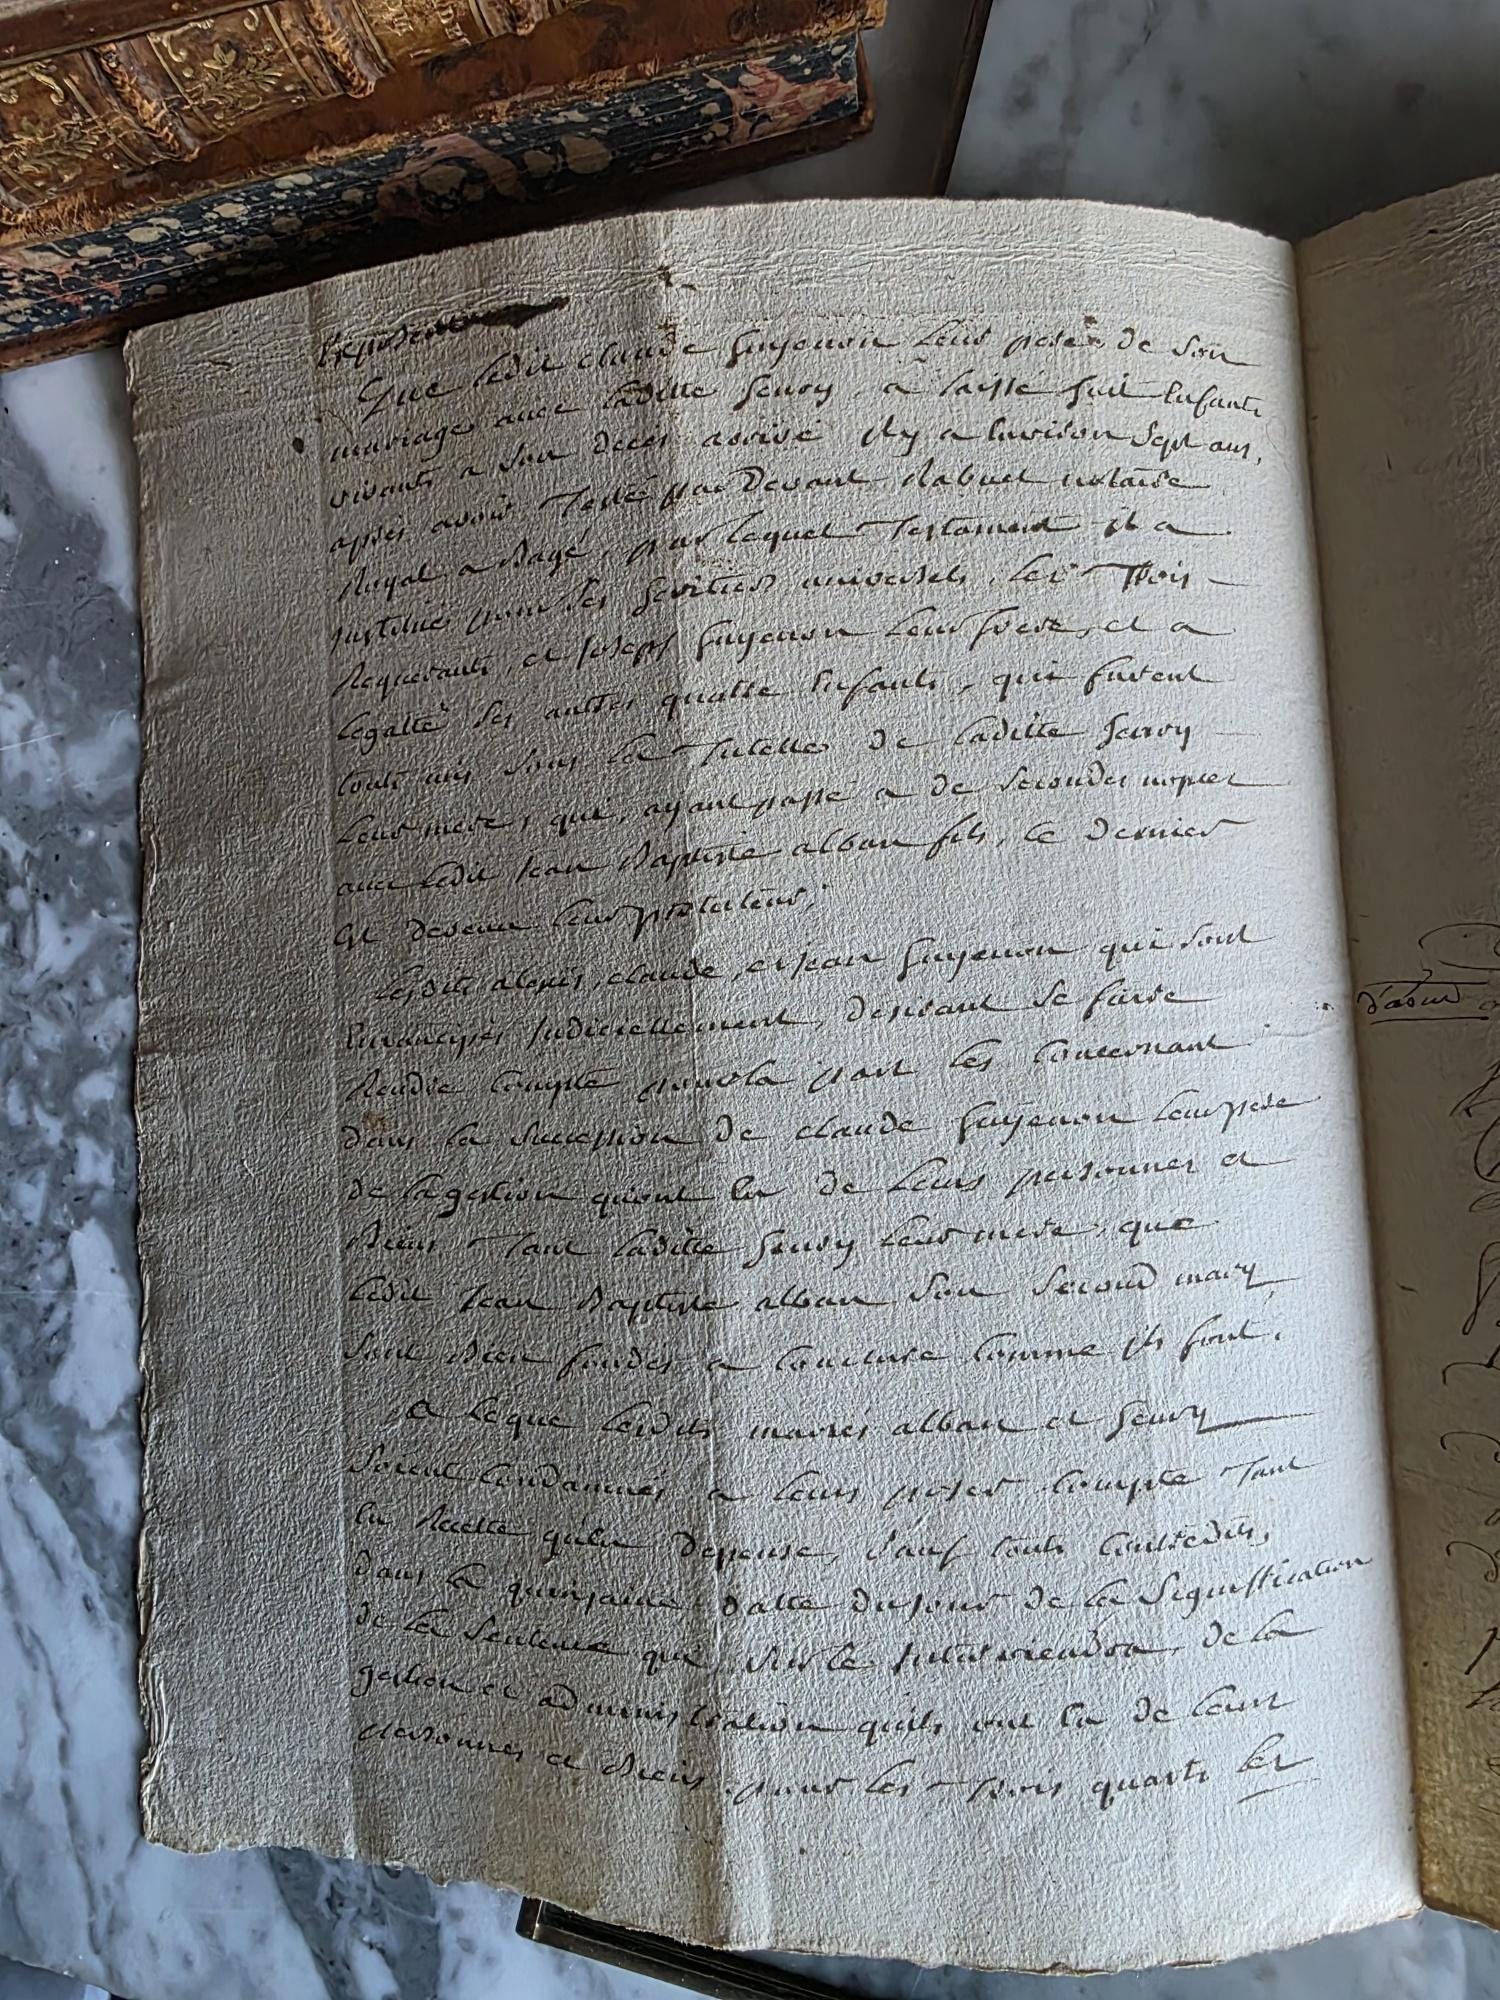 Exposent
Que ledit claude Guyenon leur pere, de son
mariage avec laditte Genvy, a laissé huit Enfants
vivants a son decés arrivé jl y a Environ sept ans,
aprés avoir Testé par Devant Rabuel notaire
Royal a Bagé, par lequel Testament jl a
justitués pour ses heritiers universels, les Trois
Requerants, et joseph Guyenon leur frere, et a
legatté ses autres quattre Enfants, qui furent
touts mis sous la Tutelle de laditte Genvy
leur mere, qui, ayant passé a de secondes nopces
avec ledit jean Baptiste alban fils, ce dernier
Est devenu leur protuteur;
Lesdits alexis, claude, et jean Guyenon qui sont
Emancipés judiciellement, desirant se faire
Rendre compte pour la part les concernant
dans la succession de claude Guyenon leur pere
de la gestion qu'ont Eu de leurs personnes et
Biens Tant laditte Genvy leur mere, que
ledit jean Baptiste alban son second mary,
sont Bien fondés a conclure comme jls font,
a ce que lesdits mariés alban et Genvy
soient Condamnés a leurs poser compte Tant
En Recette qu'en depense, sauf touts contredits,
dans la quinzaine, datte du jour de la signiffication
de la sentence qui, sur ce jnterviendra, de la
gestion et administration qu'ils ont Eu de leurs
personnes et Biens, pour les Trois quarts les
d'abord